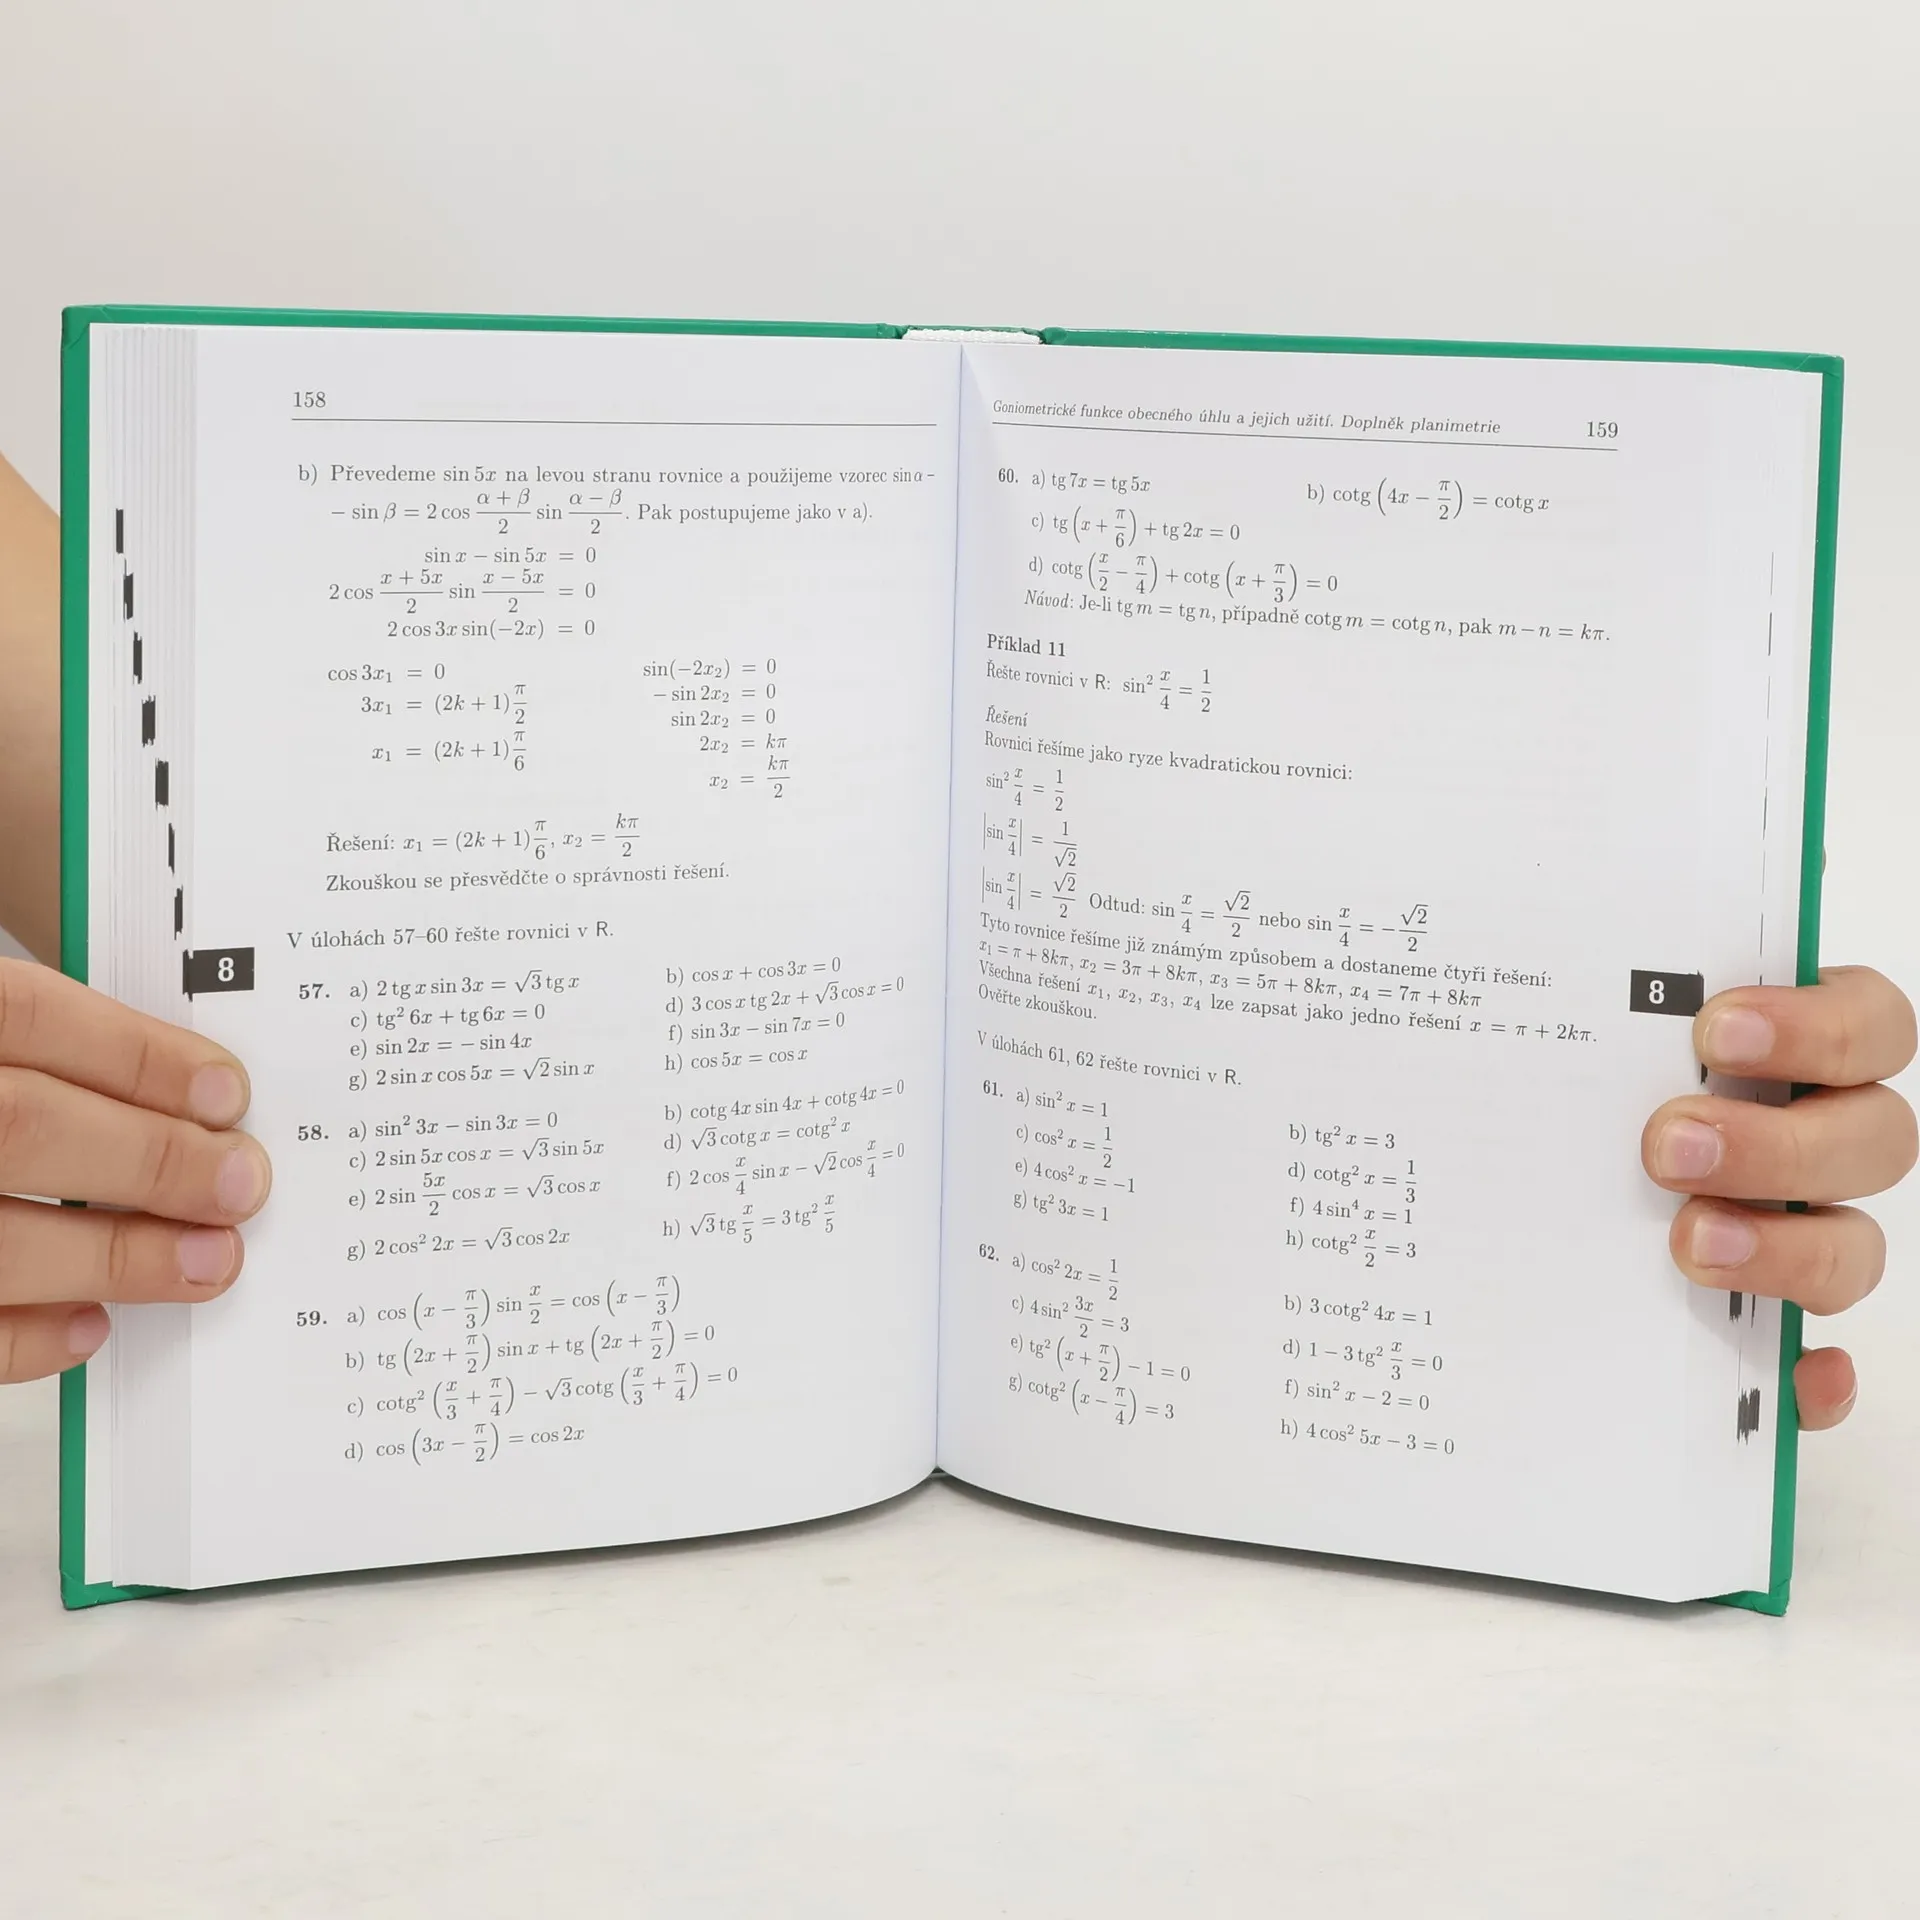 158
b) Převedeme sin 5x na levou stranu rovnice a použijeme vzorec sin α −
− sin β = 2 cos (α + β)/2 sin (α − β)/2. Pak postupujeme jako v a).
sin x − sin 5x = 0
2 cos (x + 5x)/2 sin (x − 5x)/2 = 0
2 cos 3x sin(−2x) = 0
cos 3x₁ = 0
3x₁ = (2k + 1) π/2
x₁ = (2k + 1) π/6
sin(−2x₂) = 0
− sin 2x₂ = 0
sin 2x₂ = 0
2x₂ = kπ
x₂ = kπ/2
Řešení: x₁ = (2k + 1) π/6, x₂ = kπ/2
Zkouškou se přesvědčte o správnosti řešení.
V úlohách 57–60 řešte rovnici v R.
8
57. a) 2 tg x sin 3x = √3 tg x b) cos x + cos 3x = 0
c) tg² 6x + tg 6x = 0 d) 3 cos x tg 2x + √3 cos x = 0
e) sin 2x = − sin 4x f) sin 3x − sin 7x = 0
g) 2 sin x cos 5x = √2 sin x h) cos 5x = cos x
58. a) sin² 3x − sin 3x = 0 b) cotg 4x sin 4x + cotg 4x = 0
c) 2 sin 5x cos x = √3 sin 5x d) √3 cotg x = cotg² x
e) 2 sin 5x/2 cos x = √3 cos x f) 2 cos x/4 sin x − √2 cos x/4 = 0
g) 2 cos² 2x = √3 cos 2x h) √3 tg x/5 = 3 tg² x/5
59. a) cos (x − π/3) sin x/2 = cos (x − π/3)
b) tg (2x + π/2) sin x + tg (2x + π/2) = 0
c) cotg² (x/3 + π/4) − √3 cotg (x/3 + π/4) = 0
d) cos (3x − π/2) = cos 2x
Goniometrické funkce obecného úhlu a jejich užití. Doplněk planimetrie 159
60. a) tg 7x = tg 5x b) cotg (4x − π/2) = cotg x
c) tg (x + π/6) + tg 2x = 0
d) cotg (x/2 − π/4) + cotg (x + π/3) = 0
Návod: Je-li tg m = tg n, případně cotg m = cotg n, pak m − n = kπ.
Příklad 11
Řešte rovnici v R: sin² x/4 = 1/2
Řešení
Rovnici řešíme jako ryze kvadratickou rovnici:
sin² x/4 = 1/2
|sin x/4| = 1/√2
|sin x/4| = √2/2 Odtud: sin x/4 = √2/2 nebo sin x/4 = −√2/2
Tyto rovnice řešíme již známým způsobem a dostaneme čtyři řešení:
x₁ = π + 8kπ, x₂ = 3π + 8kπ, x₃ = 5π + 8kπ, x₄ = 7π + 8kπ
Všechna řešení x₁, x₂, x₃, x₄ lze zapsat jako jedno řešení x = π + 2kπ.
Ověřte zkouškou.
8
V úlohách 61, 62 řešte rovnici v R.
61. a) sin² x = 1 b) tg² x = 3
c) cos² x = 1/2 d) cotg² x = 1/3
e) 4 cos² x = −1 f) 4 sin⁴ x = 1
g) tg² 3x = 1 h) cotg² x/2 = 3
62. a) cos² 2x = 1/2 b) 3 cotg² 4x = 1
c) 4 sin² 3x/2 = 3 d) 1 − 3 tg² x/3 = 0
e) tg² (x + π/2) − 1 = 0 f) sin² x − 2 = 0
g) cotg² (x − π/4) = 3 h) 4 cos² 5x − 3 = 0